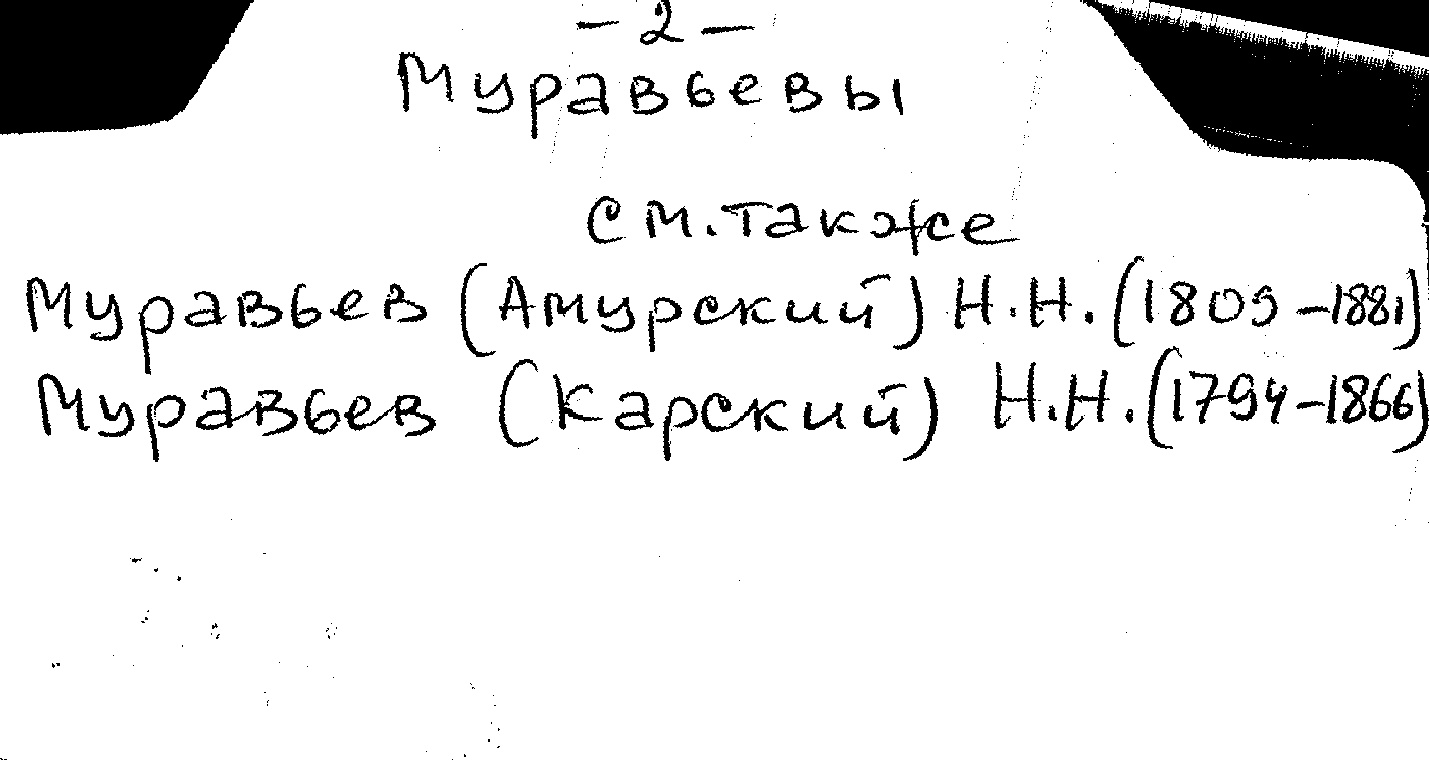 – 2 –
Муравьевы
см. также
Муравьев (Амурский) Н.Н. (1809–1881)
Муравьев (Карский) Н.Н. (1794–1866)